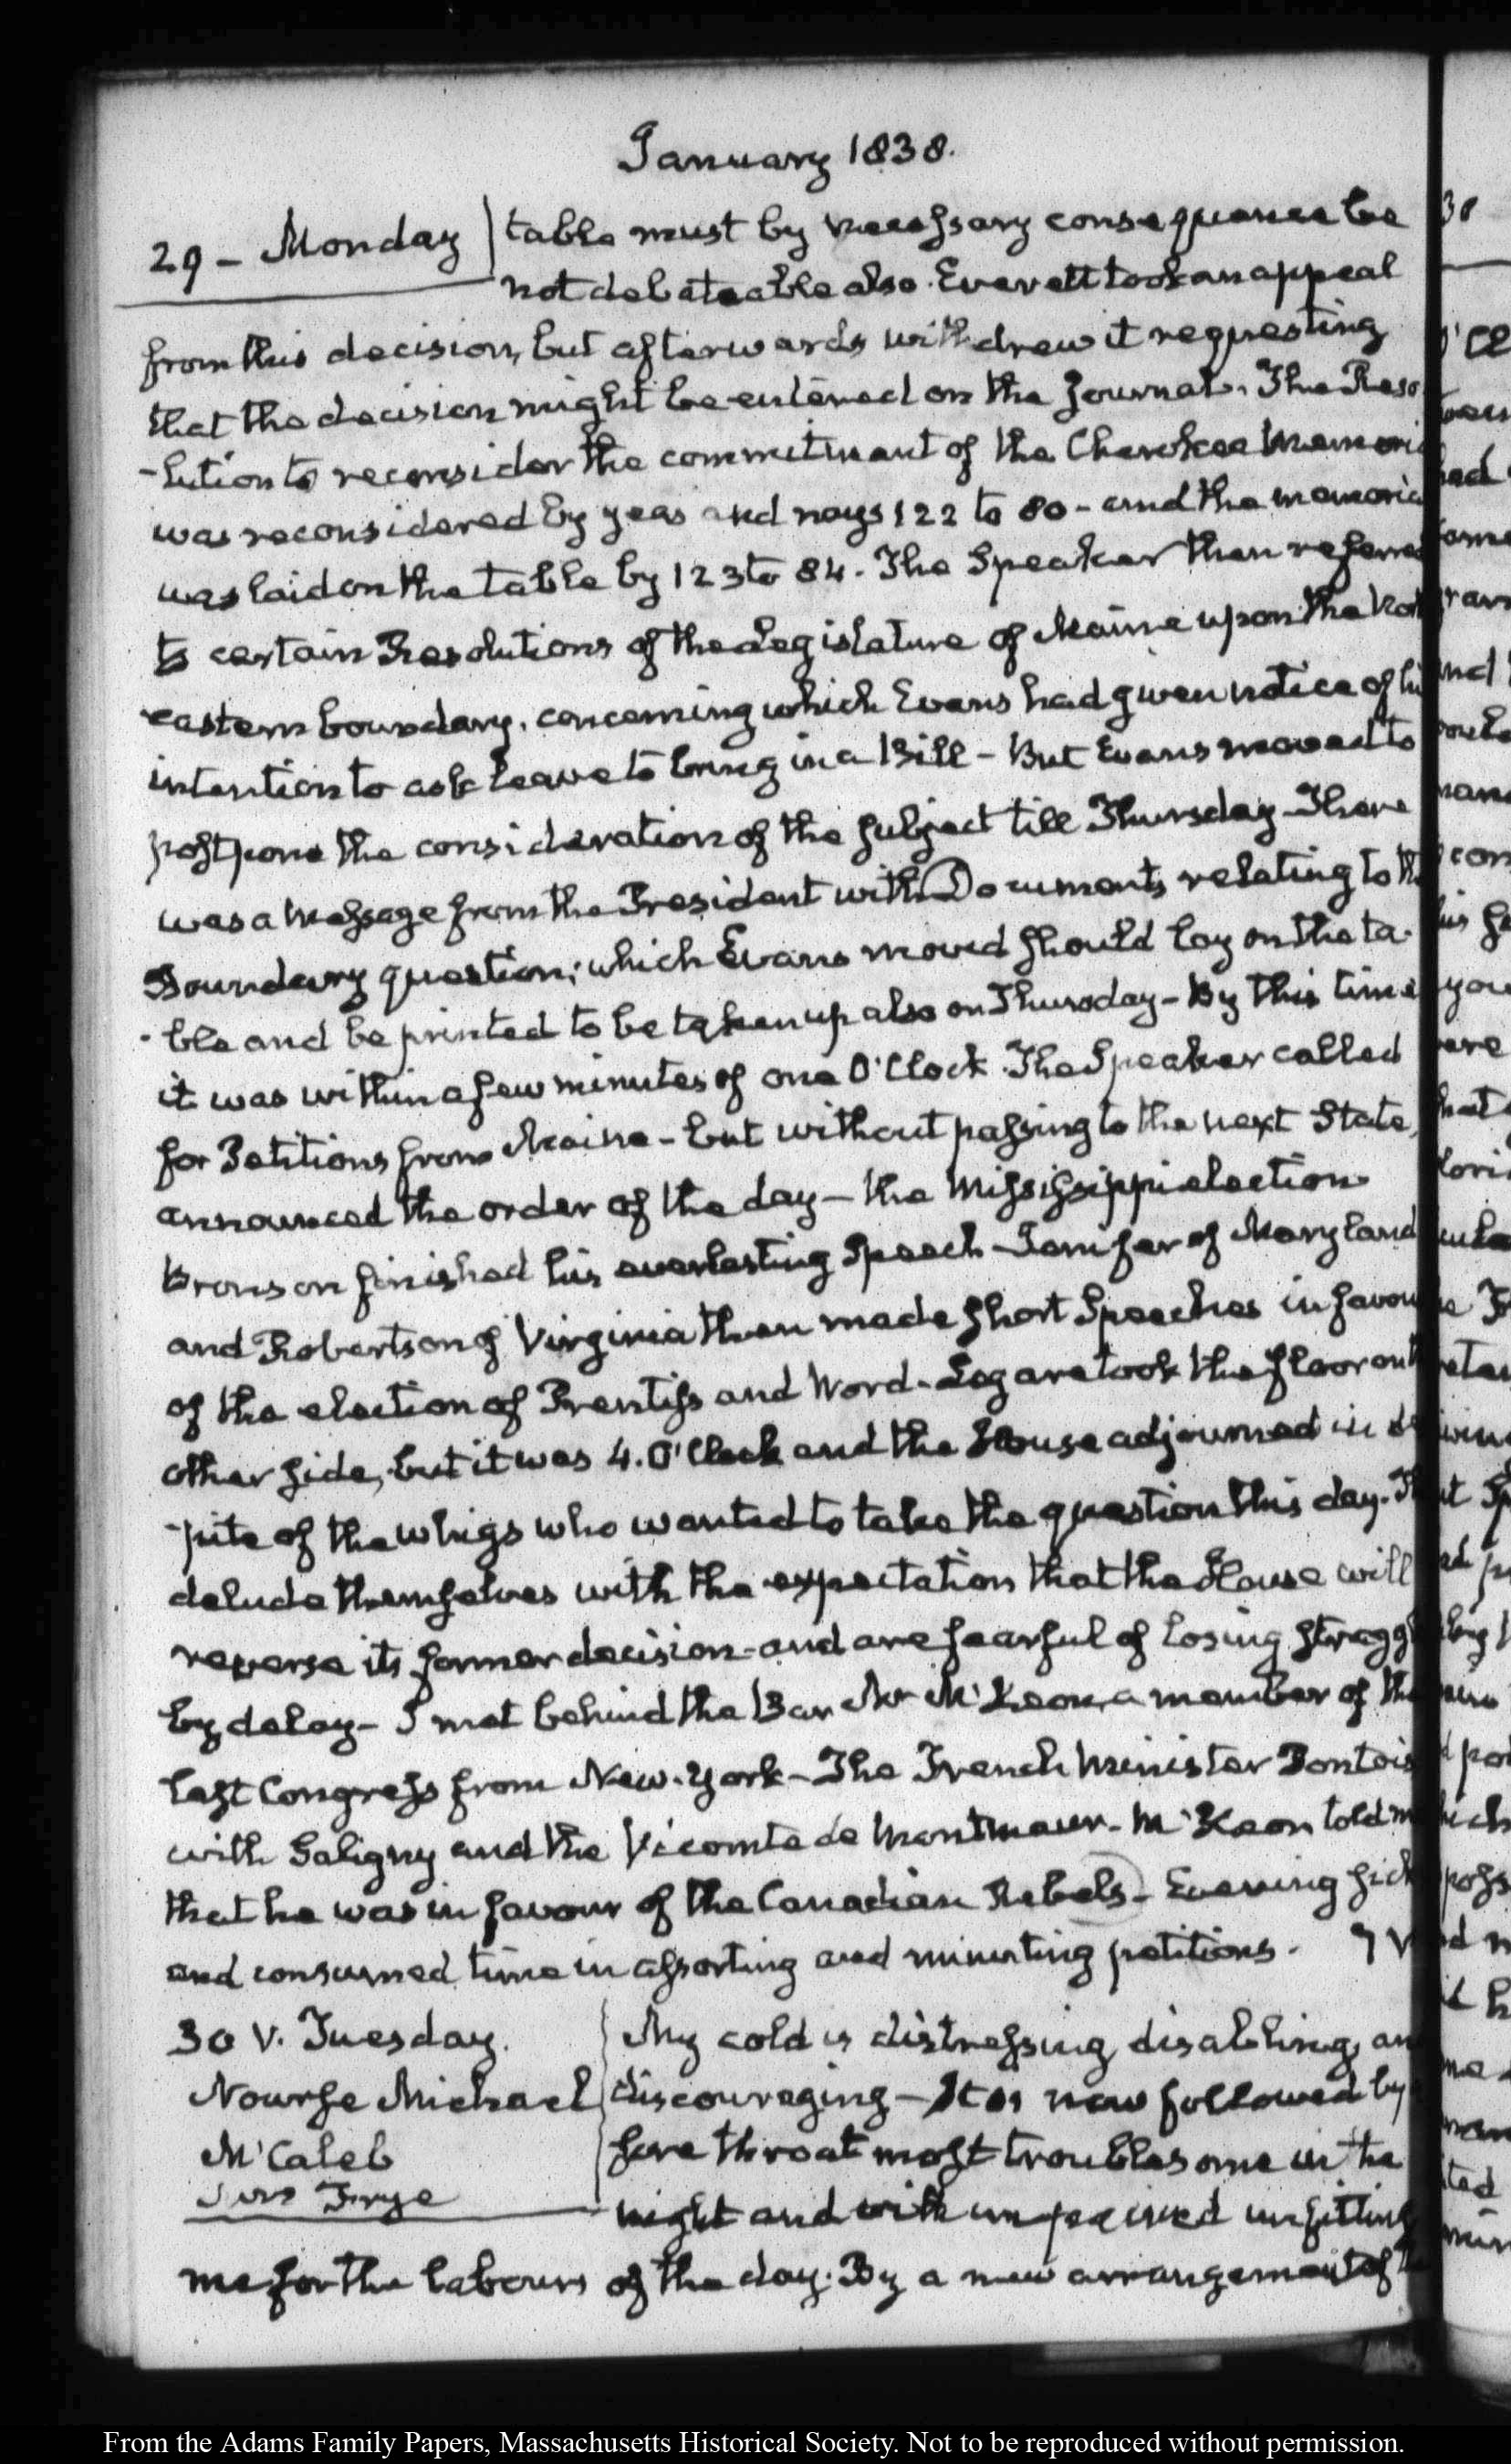 January 1838.
29 - Monday
table must by necessary consequence be
not debateable also. Everett took an appeal
from this decision, but afterwards withdrew it requesting
that the decision might be entered on the Journal. The Reso
-lution to reconsider the commitment of the Cherokee Memori
was reconsidered by yeas and nays 122 to 80 - and the memoria
was laid on the table by 123 to 84. The Speaker then referred
to certain Resolutions of the Legislature of Maine upon the Nor
eastern boundary, concerning which Evans had given notice of hi
intention to ask leave to bring in a Bill - But Evans moved to
postpone the consideration of the subject till Thursday - There
was a Message from the President with Documents relating to th
Boundary question; which Evans moved should lay on the ta-
-ble and be printed to be taken up also on Thursday - By this time
it was within a few minutes of one O'Clock. The Speaker called
for Petitions from Maine - but without passing to the next State,
announced the order of the day - the Mississippi election
Bronson finished his everlasting Speech - Jenifer of Maryland
and Robertson of Virginia then made short Speeches in favou
of the election of Prentiss and Word - Legare took the floor on
other side, but it was 4. O'Clock and the House adjourned in des
-pite of the whigs who wanted to take the question this day. Th
delude themselves with the expectation that the House will
reverse its former decision - and are fearful of losing stragg
by delay - I met behind the Bar Mr. McKeon, a member of the
last Congress from New-York - The French Minister Pontois
with Saligny and the Vicomte de Montmaur - McKeon told m
that he was in favour of the Canadian Rebels - Evening sick
and consumed time in assorting and minuting petitions.
30 V. Tuesday.
Nourse Michael
McCaleb
Frye
My cold is distressing, disabling, an
discouraging - It is now followed by
sore throat most troublesome in the
night and with unfitting
me for the labours of the day. By a new arrangement of
From the Adams Family Papers, Massachusetts Historical Society. Not to be reproduced without permission.